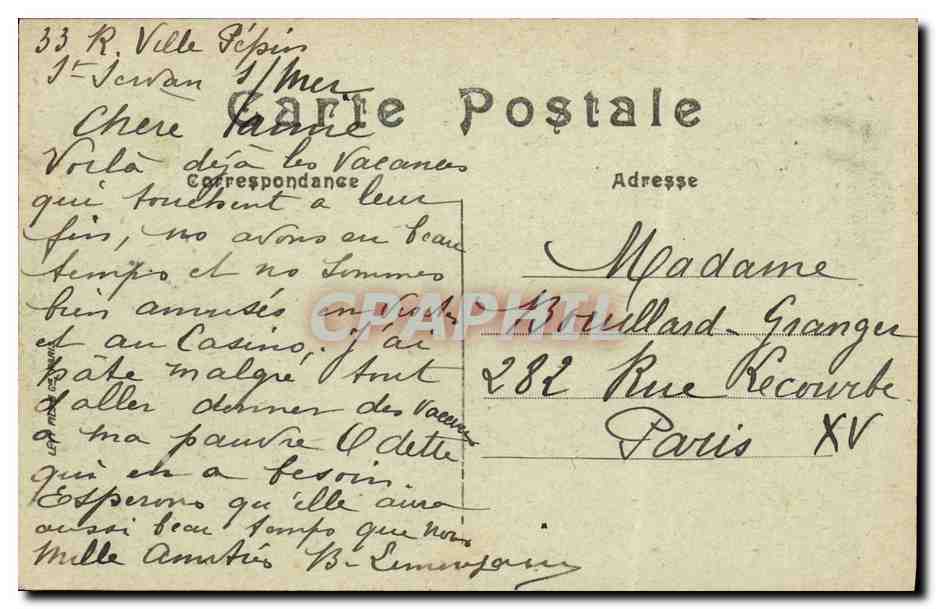 33 R. Ville Pépin
St Servan s/Mer
Carte Postale
Chere
Correspondance
Adresse
Voilà déjà les vacances
qui touchent a leur
fin, no avons eu beau
temps et no sommes
bien amusés en
et au Casino, j'ai
hâte malgré tout
d'aller donner des
a ma pauvre Odette
qui en a besoin.
Esperons qu'elle aura
aussi beau temps que nous
Mille Amitiés B.
Madame
Bouillard-Granger
282 Rue Lecourbe
Paris XV
CPAPHIL